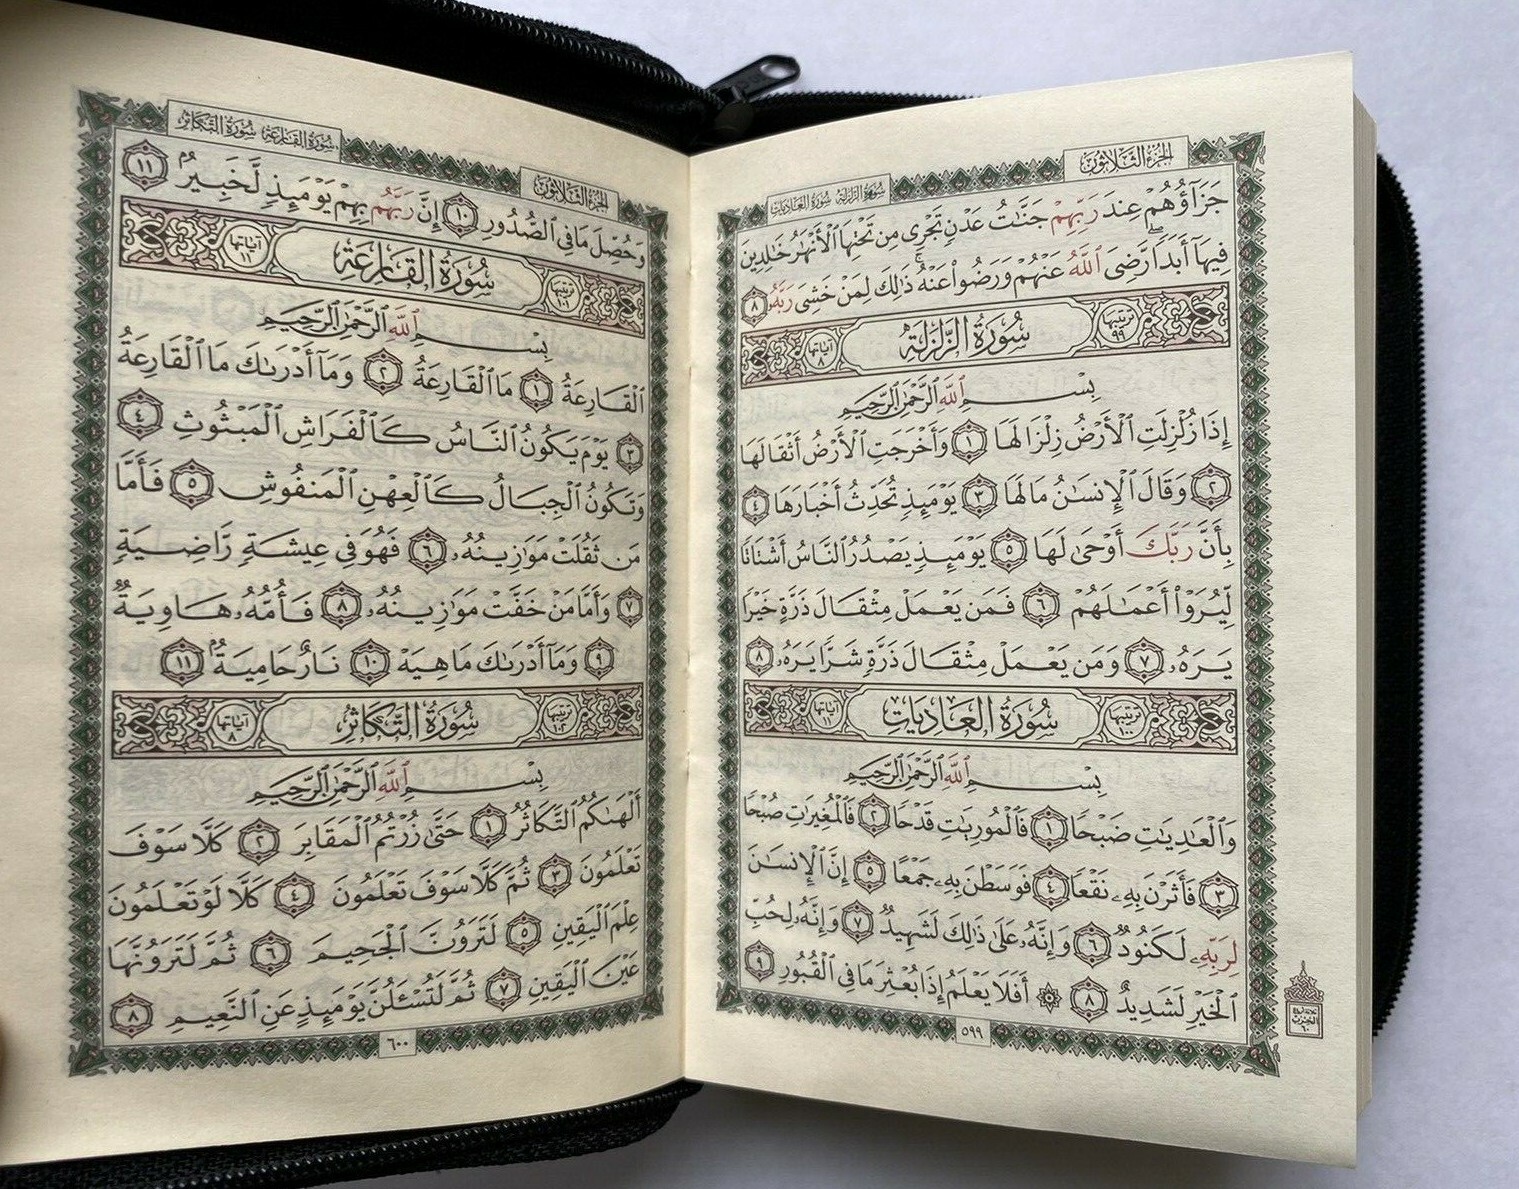 سورة الزلزلة سورة العاديات
الجزء الثلاثون
جَزَآؤُهُمْ عِندَ رَبِّهِمْ جَنَّٰتُ عَدْنٍ تَجْرِى مِن تَحْتِهَا ٱلْأَنْهَٰرُ خَٰلِدِينَ
فِيهَآ أَبَدًا ۖ رَّضِىَ ٱللَّهُ عَنْهُمْ وَرَضُوا۟ عَنْهُ ۚ ذَٰلِكَ لِمَنْ خَشِىَ رَبَّهُۥ ٨
ترتيبها ٩٩ سُورَةُ الزَّلْزَلَةِ آياتها ٨
بِسْمِ ٱللَّهِ ٱلرَّحْمَٰنِ ٱلرَّحِيمِ
إِذَا زُلْزِلَتِ ٱلْأَرْضُ زِلْزَالَهَا ١ وَأَخْرَجَتِ ٱلْأَرْضُ أَثْقَالَهَا
٢ وَقَالَ ٱلْإِنسَٰنُ مَا لَهَا ٣ يَوْمَئِذٍ تُحَدِّثُ أَخْبَارَهَا ٤
بِأَنَّ رَبَّكَ أَوْحَىٰ لَهَا ٥ يَوْمَئِذٍ يَصْدُرُ ٱلنَّاسُ أَشْتَاتًا
لِّيُرَوْا۟ أَعْمَٰلَهُمْ ٦ فَمَن يَعْمَلْ مِثْقَالَ ذَرَّةٍ خَيْرًا
يَرَهُۥ ٧ وَمَن يَعْمَلْ مِثْقَالَ ذَرَّةٍ شَرًّا يَرَهُۥ ٨
ترتيبها ١٠٠ سُورَةُ العَادِيَاتِ آياتها ١١
بِسْمِ ٱللَّهِ ٱلرَّحْمَٰنِ ٱلرَّحِيمِ
وَٱلْعَٰدِيَٰتِ ضَبْحًا ١ فَٱلْمُورِيَٰتِ قَدْحًا ٢ فَٱلْمُغِيرَٰتِ صُبْحًا
٣ فَأَثَرْنَ بِهِۦ نَقْعًا ٤ فَوَسَطْنَ بِهِۦ جَمْعًا ٥ إِنَّ ٱلْإِنسَٰنَ
لِرَبِّهِۦ لَكَنُودٌ ٦ وَإِنَّهُۥ عَلَىٰ ذَٰلِكَ لَشَهِيدٌ ٧ وَإِنَّهُۥ لِحُبِّ
ٱلْخَيْرِ لَشَدِيدٌ ٨ ۞ أَفَلَا يَعْلَمُ إِذَا بُعْثِرَ مَا فِى ٱلْقُبُورِ ٩
٥٩٩
سورة القارعة سورة التكاثر
الجزء الثلاثون
وَحُصِّلَ مَا فِى ٱلصُّدُورِ ١٠ إِنَّ رَبَّهُم بِهِمْ يَوْمَئِذٍ لَّخَبِيرٌۢ ١١
ترتيبها ١٠١ سُورَةُ القَارِعَةِ آياتها ١١
بِسْمِ ٱللَّهِ ٱلرَّحْمَٰنِ ٱلرَّحِيمِ
ٱلْقَارِعَةُ ١ مَا ٱلْقَارِعَةُ ٢ وَمَآ أَدْرَىٰكَ مَا ٱلْقَارِعَةُ
٣ يَوْمَ يَكُونُ ٱلنَّاسُ كَٱلْفَرَاشِ ٱلْمَبْثُوثِ ٤
وَتَكُونُ ٱلْجِبَالُ كَٱلْعِهْنِ ٱلْمَنفُوشِ ٥ فَأَمَّا
مَن ثَقُلَتْ مَوَٰزِينُهُۥ ٦ فَهُوَ فِى عِيشَةٍ رَّاضِيَةٍ
٧ وَأَمَّا مَنْ خَفَّتْ مَوَٰزِينُهُۥ ٨ فَأُمُّهُۥ هَاوِيَةٌ
٩ وَمَآ أَدْرَىٰكَ مَا هِيَهْ ١٠ نَارٌ حَامِيَةٌۢ ١١
ترتيبها ١٠٢ سُورَةُ التَّكَاثُرِ آياتها ٨
بِسْمِ ٱللَّهِ ٱلرَّحْمَٰنِ ٱلرَّحِيمِ
أَلْهَىٰكُمُ ٱلتَّكَاثُرُ ١ حَتَّىٰ زُرْتُمُ ٱلْمَقَابِرَ ٢ كَلَّا سَوْفَ
تَعْلَمُونَ ٣ ثُمَّ كَلَّا سَوْفَ تَعْلَمُونَ ٤ كَلَّا لَوْ تَعْلَمُونَ
عِلْمَ ٱلْيَقِينِ ٥ لَتَرَوُنَّ ٱلْجَحِيمَ ٦ ثُمَّ لَتَرَوُنَّهَا
عَيْنَ ٱلْيَقِينِ ٧ ثُمَّ لَتُسْـَٔلُنَّ يَوْمَئِذٍ عَنِ ٱلنَّعِيمِ ٨
٦٠٠